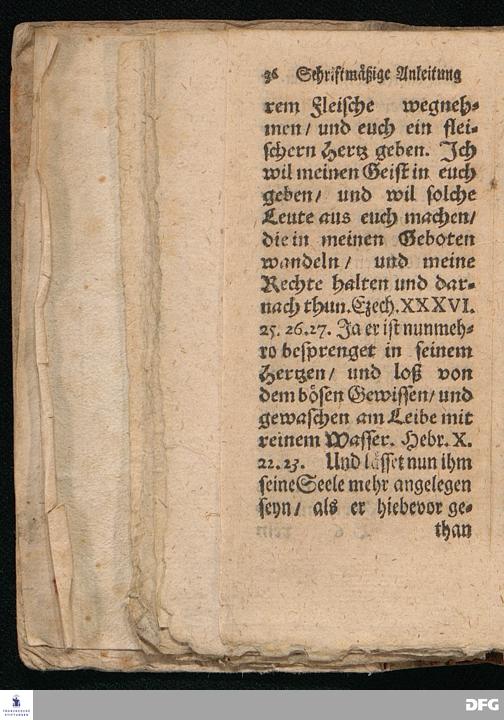 36 Schriftmäßige Anleitung
rem Fleische wegneh-
men/ und euch ein flei-
schern Hertz geben. Ich
wil meinen Geist in euch
geben/ und wil solche
Leute aus euch machen/
die in meinen Geboten
wandeln/ und meine
Rechte halten und dar-
nach thun. Ezech. XXXVI.
25. 26. 27. Ja er ist nunmeh-
ro besprenget in seinem
Hertzen/ und loß von
dem bösen Gewissen/ und
gewaschen am Leibe mit
reinem Wasser. Hebr. X.
22. 23. Und lässet nun ihm
seine Seele mehr angelegen
seyn/ als er hiebevor ge-
than
FRANCKESCHE
STIFTUNGEN
DFG